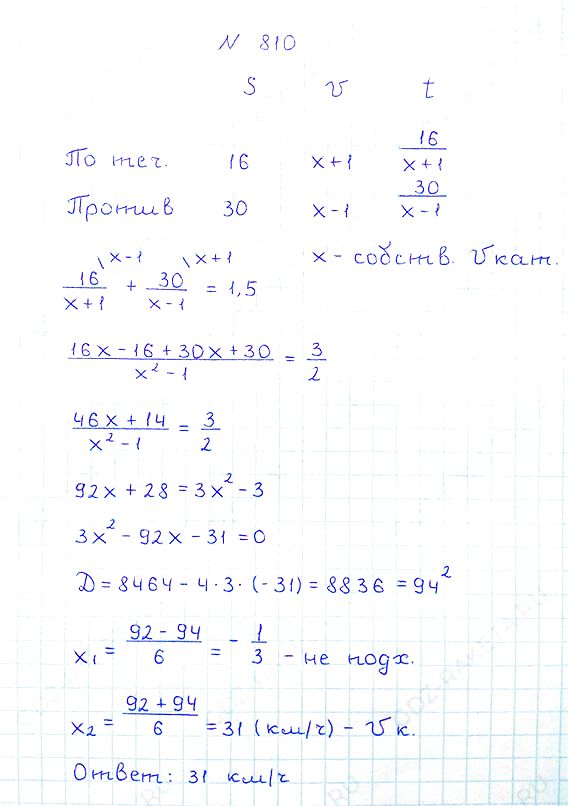 N 810
S v t
По теч. 16 x+1 16/(x+1)
Против 30 x-1 30/(x-1)
x - собств. v кат.
16/(x+1) \x-1 + 30/(x-1) \x+1 = 1,5
(16x-16+30x+30)/(x²-1) = 3/2
(46x+14)/(x²-1) = 3/2
92x+28=3x²-3
3x²-92x-31=0
D=8464-4·3·(-31)=8836=94²
x₁=(92-94)/6=-1/3 - не подх.
x₂=(92+94)/6=31 (км/ч) - v к.
Ответ: 31 км/ч